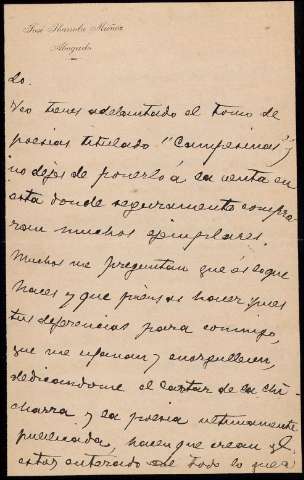 José Ibarrola Muñoz
Abogado
lo.
Veo tienes adelantado el tomo de
poesias titulado "Campesinas" y
no dejes de ponerlo á la venta en
esta donde seguramente compra
ran muchos ejemplares.
Muchos me preguntan qué es lo que
haces y que piensas hacer, pues
tus deferencias para conmigo,
que me ufanan y enorgullecen,
dedicandome el cantar de la chi
charra y la poesia ultimamente
publicada, hacen que crean q.
estoy enterado de todo lo que á